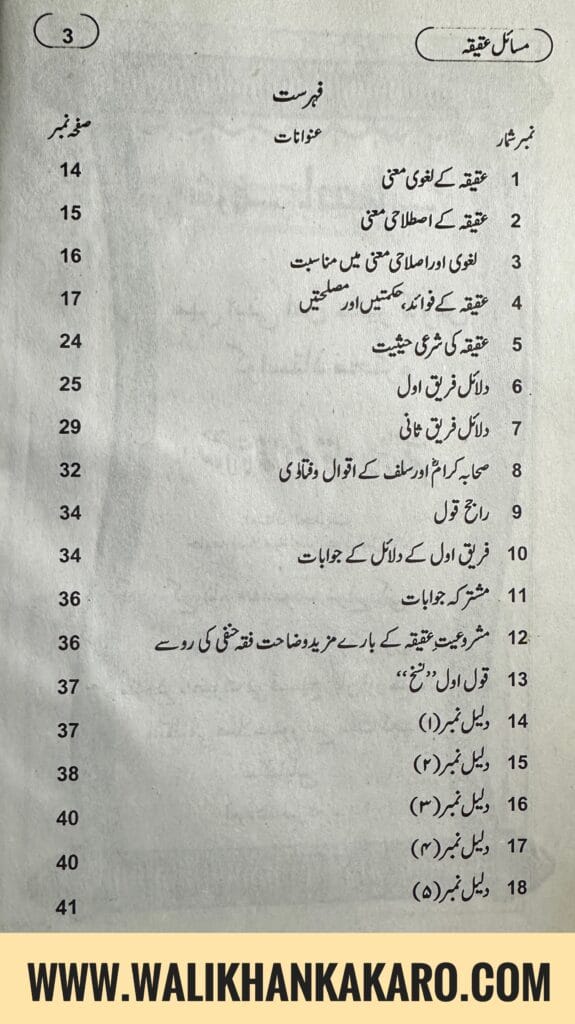 مسائل عقیقہ 3
فہرست
نمبر شمار عنوانات صفحہ نمبر
1 عقیقہ کے لغوی معنی 14
2 عقیقہ کے اصطلاحی معنی 15
3 لغوی اور اصلاحی معنی میں مناسبت 16
4 عقیقہ کے فوائد، حکمتیں اور مصلحتیں 17
5 عقیقہ کی شرعی حیثیت 24
6 دلائل فریق اول 25
7 دلائل فریق ثانی 29
8 صحابہ کرامؓ اور سلف کے اقوال وفتاوٰی 32
9 راجح قول 34
10 فریق اول کے دلائل کے جوابات 34
11 مشترکہ جوابات 36
12 مشروعیتِ عقیقہ کے بارے مزید وضاحت فقہ حنفی کی روسے 36
13 قول اول ”نسخ“ 37
14 دلیل نمبر (۱) 37
15 دلیل نمبر (۲) 38
16 دلیل نمبر (۳) 40
17 دلیل نمبر (۴) 40
18 دلیل نمبر (۵) 41
WWW.WALIKHANKAKARO.COM